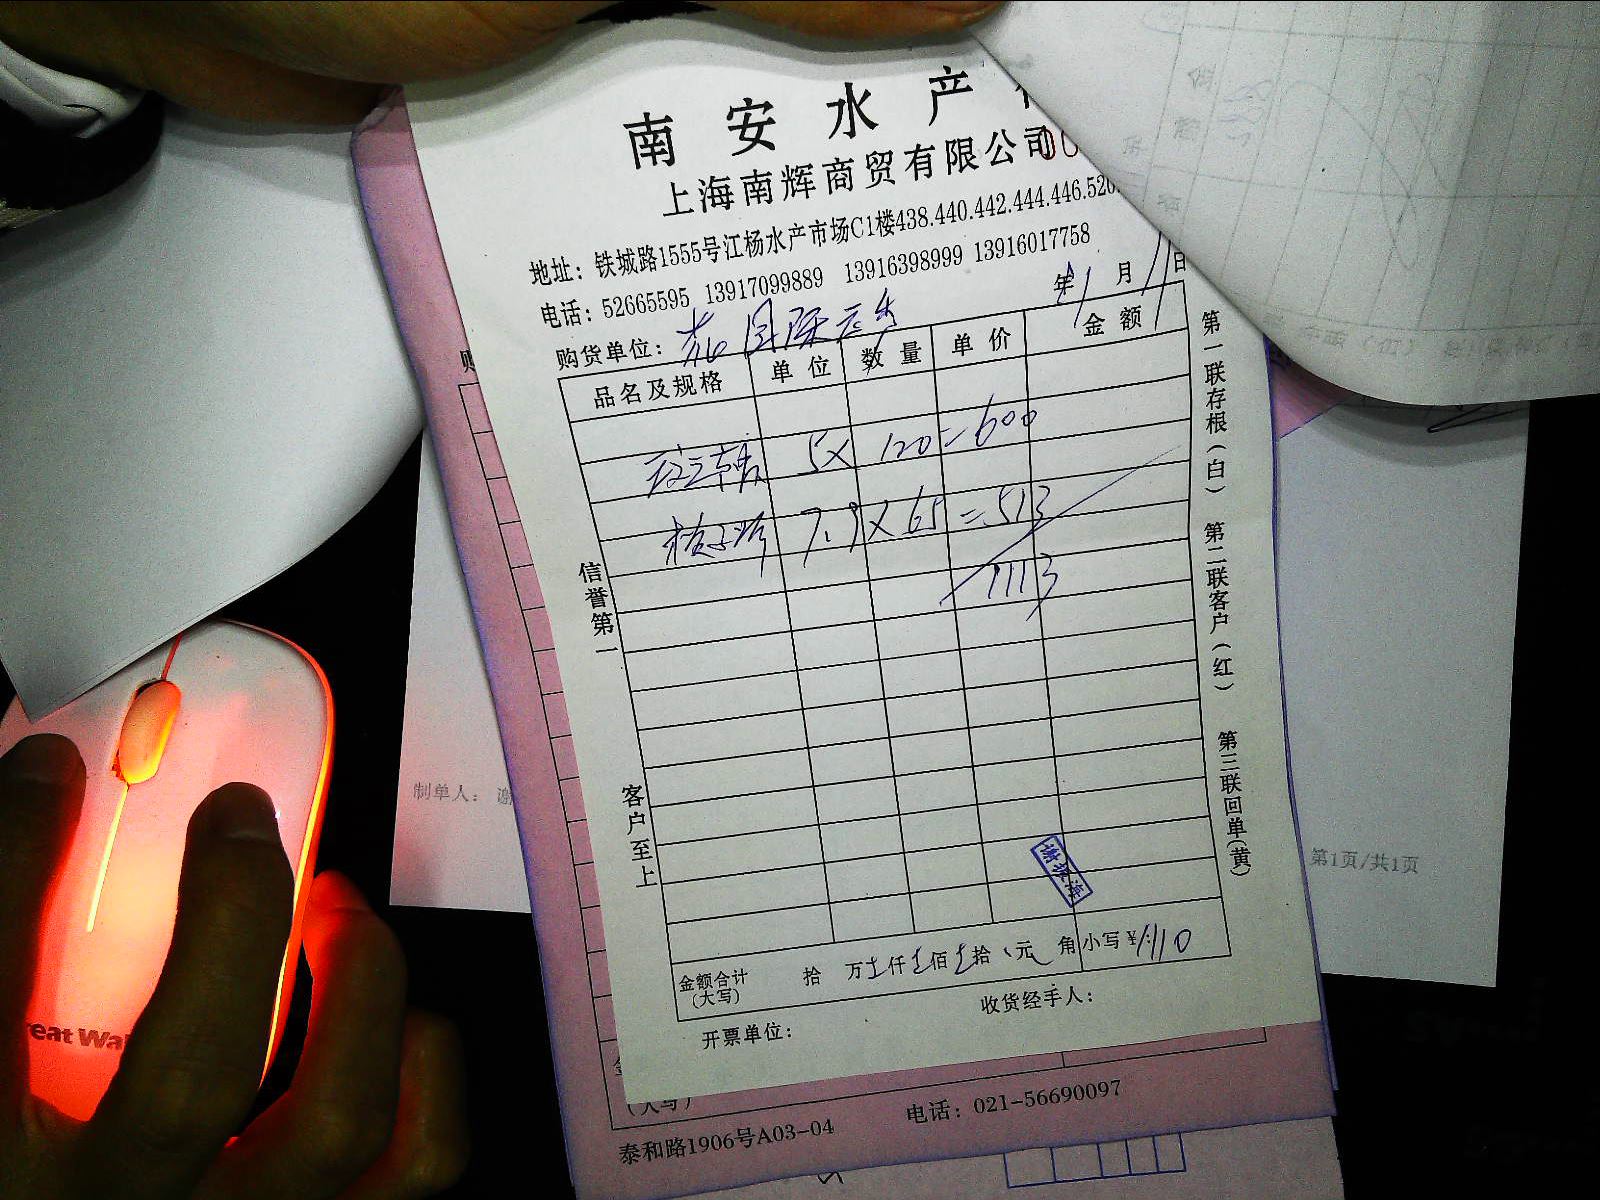 南安水产
上海南辉商贸有限公司
地址：铁城路1555号江杨水产市场C1楼438.440.442.444.446.520
电话：52665595 13917099889 13916398999 13916017758
年1月11日
购货单位：
品名及规格 单位 数量 单价 金额
5× 120=600
7.9×65=513
1113
信誉第一
客户至上
第一联存根（白） 第二联客户（红） 第三联回单（黄）
金额合计（大写） 拾 万 仟 佰 拾 元 角 小写￥：1110
开票单位：
收货经手人：
制单人：谢
第1页/共1页
（大写）
泰和路1906号A03-04 电话：021-56690097